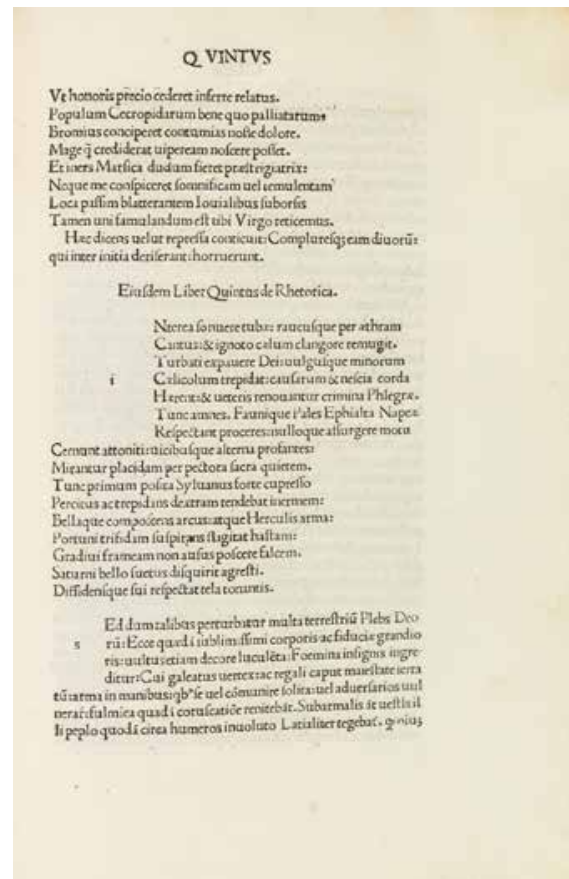 Q VINTVS
Vt honoris precio cederet inferre relatus.
Populum Cecropidarum bene quo palliatarum:
Bromius conciperet contumias nosse dolore.
Mage q̄ crediderat uipeream noscere posset.
Et iners Marsica dudum fieret præstrigiatrix:
Neque me conspiceret somnificam uel temulentam
Loca passim blatterantem Iouialibus suborsis
Tamen uni famulandum est tibi Virgo reticemus.
Hæc dicens uelut repressa conticuit: Complureſqȝ eam diuorū:
qui inter initia deriserant: horruerunt.
Eiusdem Liber Quintus de Rhetorica.
Nterea sonuere tubæ: raucusque per æthram
Cantus: & ignoto cælum clangore remugit.
Turbati expauere Dei: uulgusque minorum
i Cælicolum trepidat: causarum & nescia corda
Herent: & ueteris renouantur crimina Phlegræ.
Tunc amnes. Faunique Pales Ephialta Napeæ
Respectant proceres: nulloque assurgere motu
Cernunt attoniti: uicibusque alterna profantes:
Mirantur placidam per pectora sacra quietem.
Tunc primum posita Syluanus forte cupresso
Percitus ac trepidans dextram tendebat inermem:
Bellaque composcens arcus: atque Herculis arma:
Portuni trifidam suspirans flagitat hastam:
Gradiui frameam non ausus poscere falcem.
Saturni bello suetus disquirit agresti.
Diffidensque sui respectat tela tonantis.
Ed dum talibus perturbatur multa terrestriū Plebs Deo
s rū: Ecce quædā sublimissimi corporis ac fiduciæ grandio
ris: uultus etiam decore luculēta: Foemina insignis ingre-
ditur: Cui galeatus uertex: ac regali caput maiestate
tū: arma in manibus: uel cōmunire solita: uel aduersarios uul
fulmiea quadā coruscatiōe renitebāt. Subarmalis āt uestis il
li peplo quodā circa humeros inuoluto Latialiter tegebat.